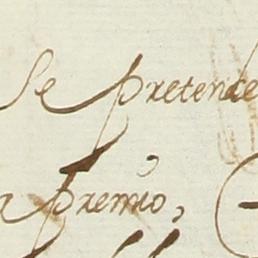 Se pretende
Premio,